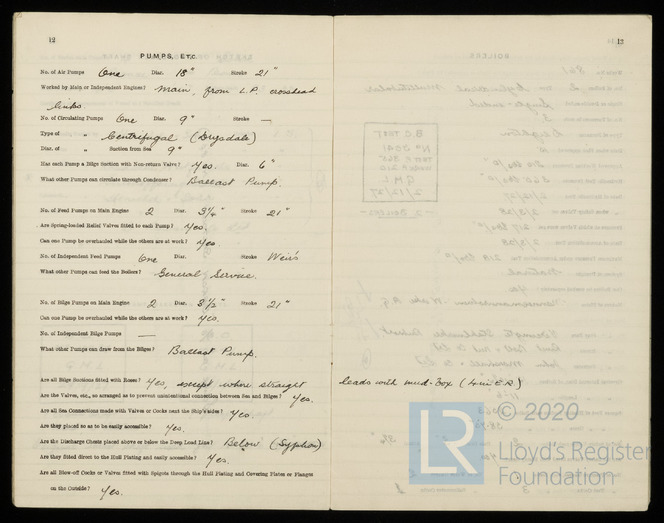 12
PUMPS, ETC.
No. of Air Pumps One Diar. 18" Stroke 21"
Worked by Main or Independent Engines? Main, from L.P. crosshead
links.
No. of Circulating Pumps One Diar. 9" Stroke —
Type of " Centrifugal (Drysdale)
Diar. of " Suction from Sea 9"
Has each Pump a Bilge Suction with Non-return Valve? Yes. Diar. 6"
What other Pumps can circulate through Condenser? Ballast Pump.
No. of Feed Pumps on Main Engine 2 Diar. 3¼" Stroke 21"
Are Spring-loaded Relief Valves fitted to each Pump? Yes.
Can one Pump be overhauled while the others are at work? Yes.
No. of Independent Feed Pumps One Diar. Stroke Weirs
What other Pumps can feed the Boilers? General Service.
No. of Bilge Pumps on Main Engine 2 Diar. 3½" Stroke 21"
Can one Pump be overhauled while the others are at work? Yes.
No. of Independent Bilge Pumps —
What other Pumps can draw from the Bilges? Ballast Pump.
Are all Bilge Suctions fitted with Roses? Yes, except where straight leads with mud-box (4 in E.R)
Are the Valves, etc., so arranged as to prevent unintentional connection between Sea and Bilges? Yes.
Are all Sea Connections made with Valves or Cocks next the Ship's sides? Yes.
Are they placed so as to be easily accessible? Yes.
Are the Discharge Chests placed above or below the Deep Load Line? Below (Syphon)
Are they fitted direct to the Hull Plating and easily accessible? Yes.
Are all Blow-off Cocks or Valves fitted with Spigots through the Hull Plating and Covering Plates or Flanges
on the Outside? Yes.
12
© 2020
LR
Lloyd's Register
Foundation